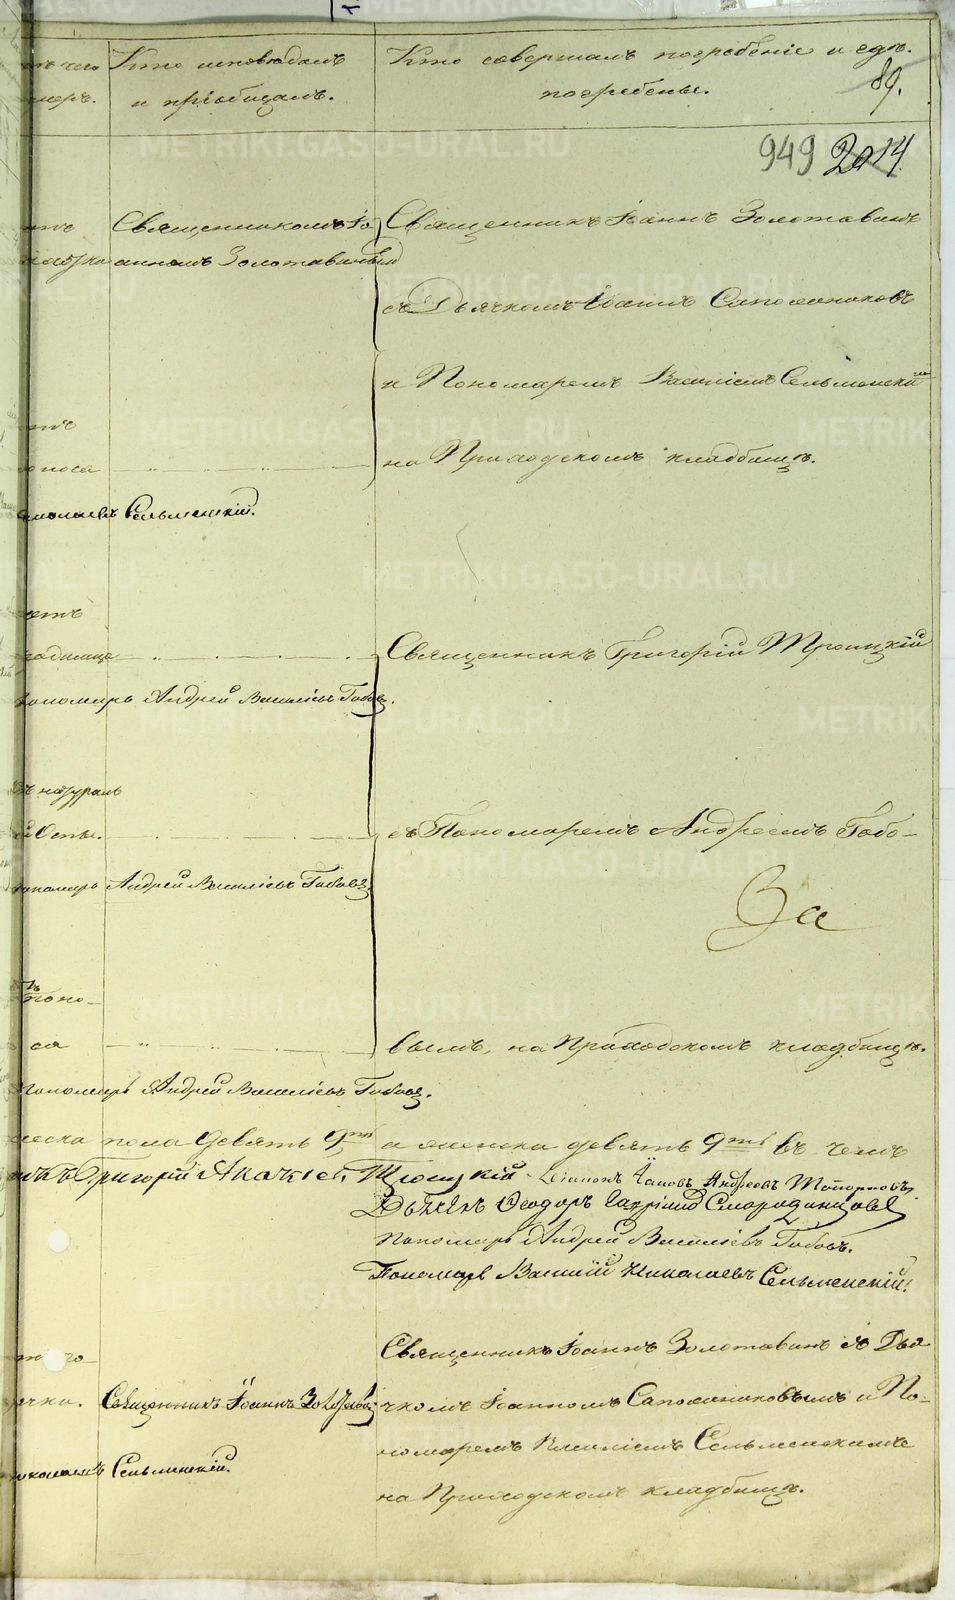 Кто исповѣдалъ
и пріобщалъ.
Кто совершалъ погребеніе и гдѣ
погребены.
89.
949 2014
Священникомъ Іо-
анномъ Золотавинымъ
Священникъ Іоаннъ Золотавинъ
съ Дьячкомъ Іоанн Сапожниковъ
и Пономаремъ Василіемъ Сельменски
на Приходскомъ кладбищѣ.
Сельменскій.
Священникъ Григорій Троицкій
Пономарь Андрей Василіевъ Габовъ.
натураль
Оспы.
съ Пономаремъ Андреемъ Габо-
пономарь Андрей Василіевъ Габовъ
За
поно-
са
вымъ, на Приходскомъ кладбищѣ.
Пономарь Андрей Василіевъ Габовъ.
пола девять 9ть а женска девять 9ть въ чемъ
Григорій Троицкій Діаконъ Андреевъ Топорковъ.
Дьячекъ Ѳеодоръ Смородинцовъ
Пономарь Андрей Василіевъ Габовъ.
Пономарь Василій Николаевъ Сельменскій.
Священникъ Іоаннъ Золотавинъ съ Дья-
Священникъ Іоаннъ Золотавин
чкомъ Іоанномъ Сапожниковымъ и По-
номаремъ Василіемъ Сельменскимъ
Сельменскій.
на Приходскомъ кладбищѣ.
METRIKI.GASO-URAL.RU